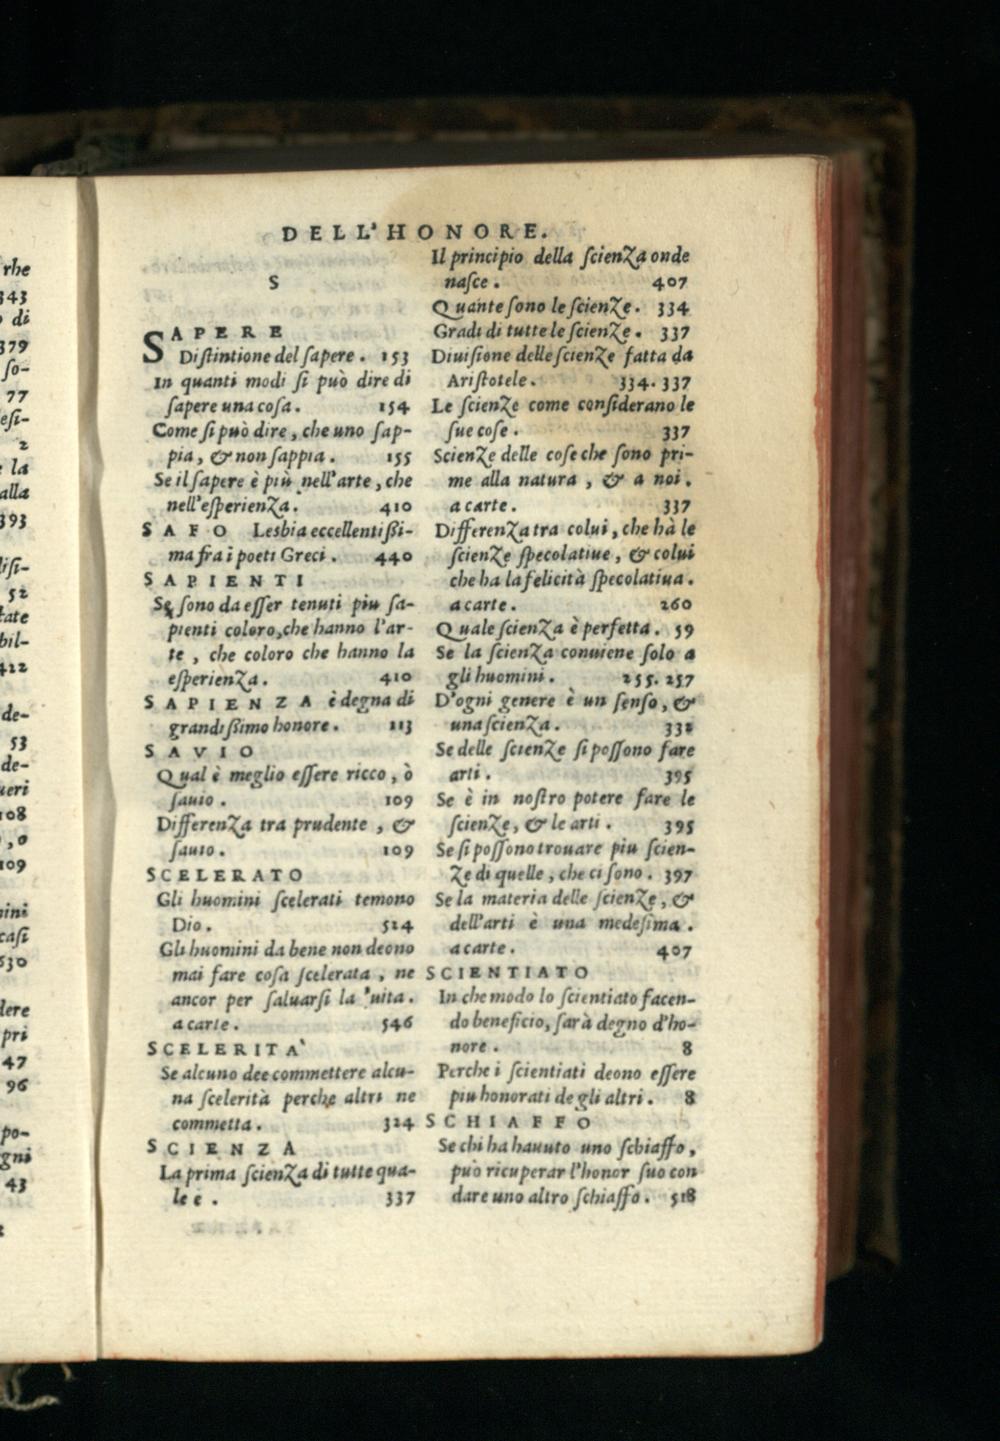 rhe
343
o di
379
so-
77
esi-
2
e la
alla
393
lisi-
52
tate
bil-
412
de-
53
de-
ueri
108
, o
109
mini
casi
630
dere
pri
47
96
po-
gni
43
DELL'HONORE.
S
SAPERE
Distintione del sapere. 153
In quanti modi si può dire di
sapere una cosa. 154
Come si può dire, che uno sap-
pia, & non sappia. 155
Se il sapere è più nell'arte, che
nell'esperienza. 410
SAFO Lesbia eccellentißi-
ma fra i poeti Greci. 440
SAPIENTI
Se sono da esser tenuti piu sa-
pienti coloro, che hanno l'ar-
te, che coloro che hanno la
esperienza. 410
SAPIENZA è degna di
grandißimo honore. 113
SAVIO
Qual è meglio essere ricco, ò
sauio. 109
Differenza tra prudente, &
sauio. 109
SCELERATO
Gli huomini scelerati temono
Dio. 524
Gli huomini da bene non deono
mai fare cosa scelerata, ne
ancor per saluarsi la 'uita.
a carte. 546
SCELERITA'
Se alcuno dee commettere alcu-
na scelerità perche altri ne
commetta. 324
SCIENZA
La prima scienza di tutte qua-
le e. 337
Il principio della scienza onde
nasce. 407
Quante sono le scienze. 334
Gradi di tutte le scienze. 337
Diuisione delle scienze fatta da
Aristotele. 334. 337
Le scienze come considerano le
sue cose. 337
Scienze delle cose che sono pri-
me alla natura, & a noi.
a carte. 337
Differenza tra colui, che hà le
scienze specolatiue, & colui
che ha la felicità specolatiua.
a carte. 260
Quale scienza è perfetta. 59
Se la scienza conuiene solo a
gli huomini. 255. 257
D'ogni genere è un senso, &
una scienza. 332
Se delle scienze si possono fare
arti. 395
Se è in nostro potere fare le
scienze, & le arti. 395
Se si possono trouare piu scien-
ze di quelle, che ci sono. 397
Se la materia delle scienze, &
dell'arti è una medesima.
a carte. 407
SCIENTIATO
In che modo lo scientiato facen-
do beneficio, sarà degno d'ho-
nore. 8
Perche i scientiati deono essere
piu honorati de gli altri. 8
SCHIAFFO
Se chi ha hauuto uno schiaffo,
può ricuperar l'honor suo con
dare uno altro schiaffo. 518